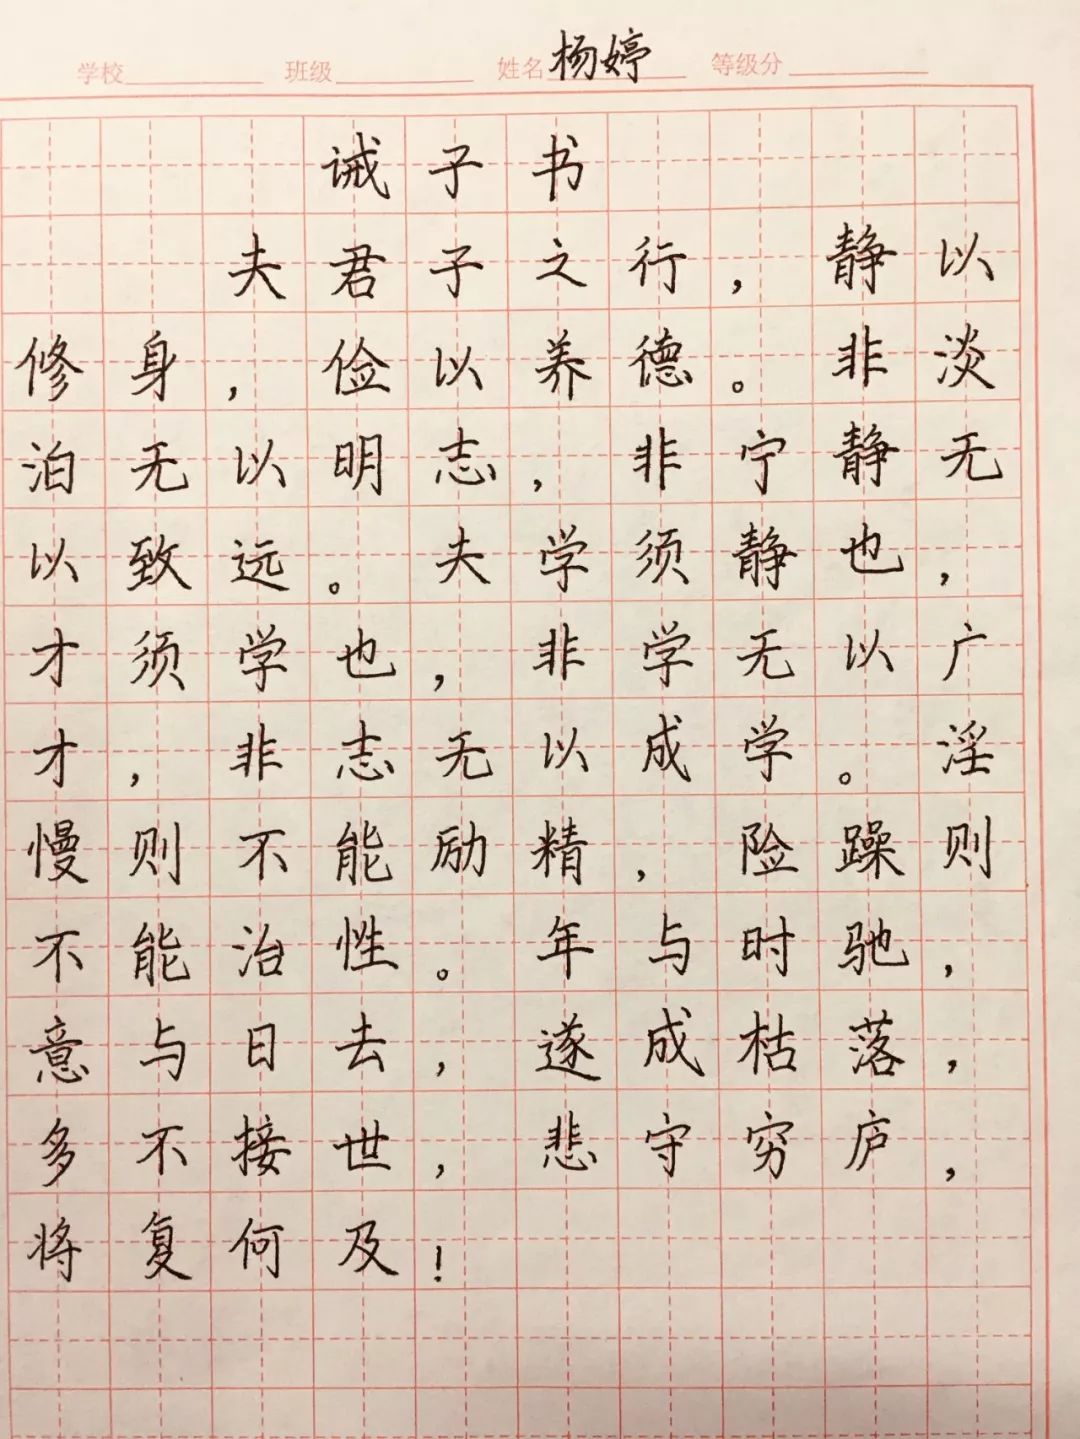 学校 班级 姓名 杨婷 等级分
诫子书
夫君子之行，静以
修身，俭以养德。非淡
泊无以明志，非宁静无
以致远。夫学须静也，
才须学也，非学无以广
才，非志无以成学。淫
慢则不能励精，险躁则
不能治性。年与时驰，
意与日去，遂成枯落，
多不接世，悲守穷庐，
将复何及！